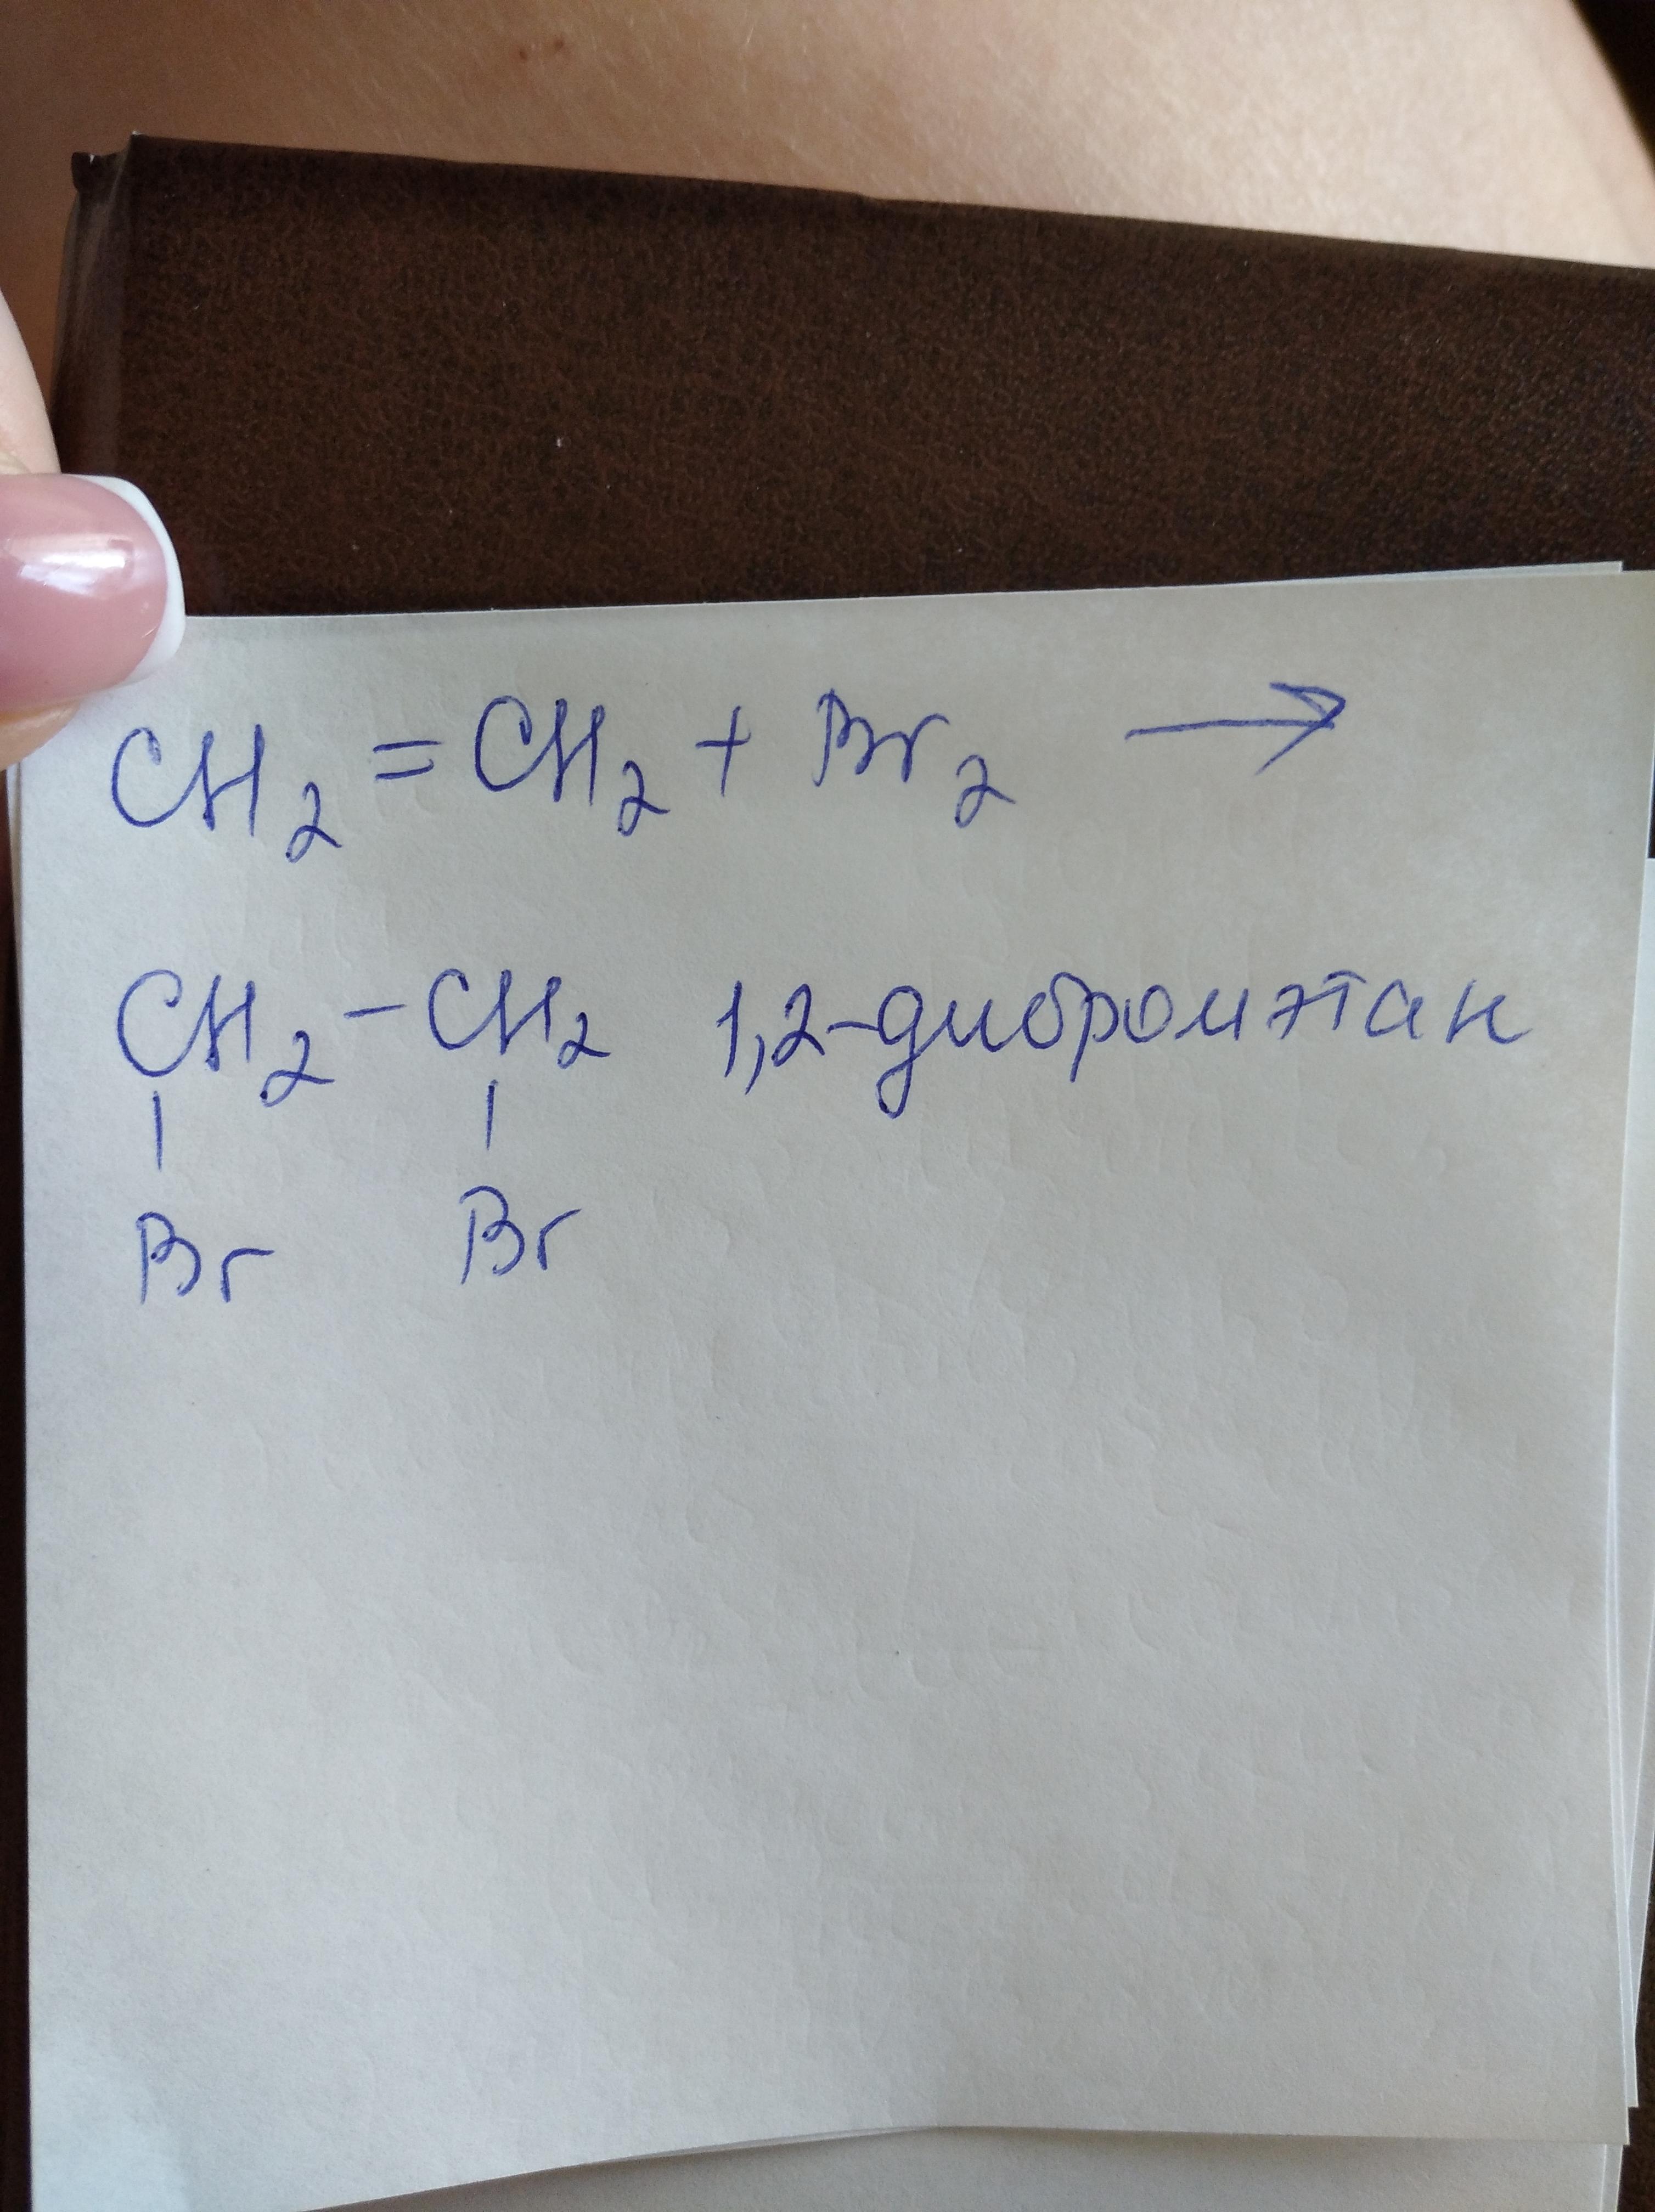 CH₂ = CH₂ + Br₂ →
CH₂ – CH₂ 1,2-дибромэтан
| |
Br Br